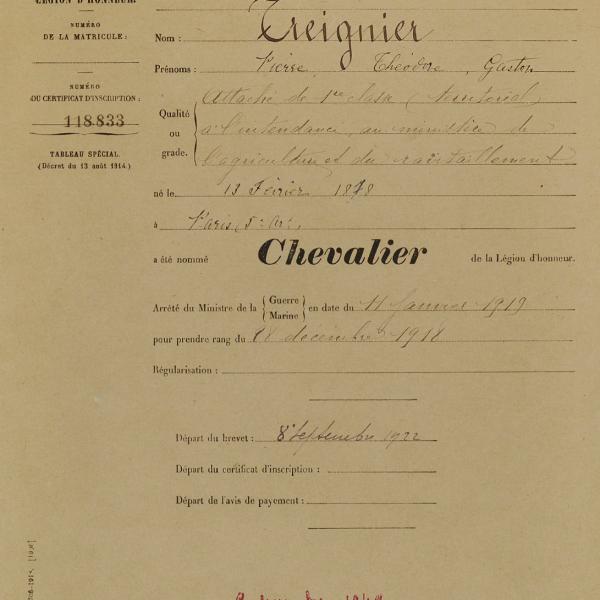 LÉGION D'HONNEUR.
NUMÉRO
DE LA MATRICULE :
NUMÉRO
DU CERTIFICAT D'INSCRIPTION :
118.833
TABLEAU SPÉCIAL.
(Décret du 13 août 1914.)
Nom : Treignier
Prénoms : Pierre, Théodore, Gaston
Qualité ou grade. Attaché de 1re classe (territorial)
à l'intendance, au ministère de
l'agriculture et du ravitaillement
né le 13 Février 1878
à Paris, 5e Art.
a été nommé Chevalier de la Légion d'honneur.
Arrêté du Ministre de la { Guerre Marine } en date du 11 Janvier 1919
pour prendre rang du décembre 1918
Régularisation :
Départ du brevet : 8 Septembre 1922
Départ du certificat d'inscription :
Départ de l'avis de payement :